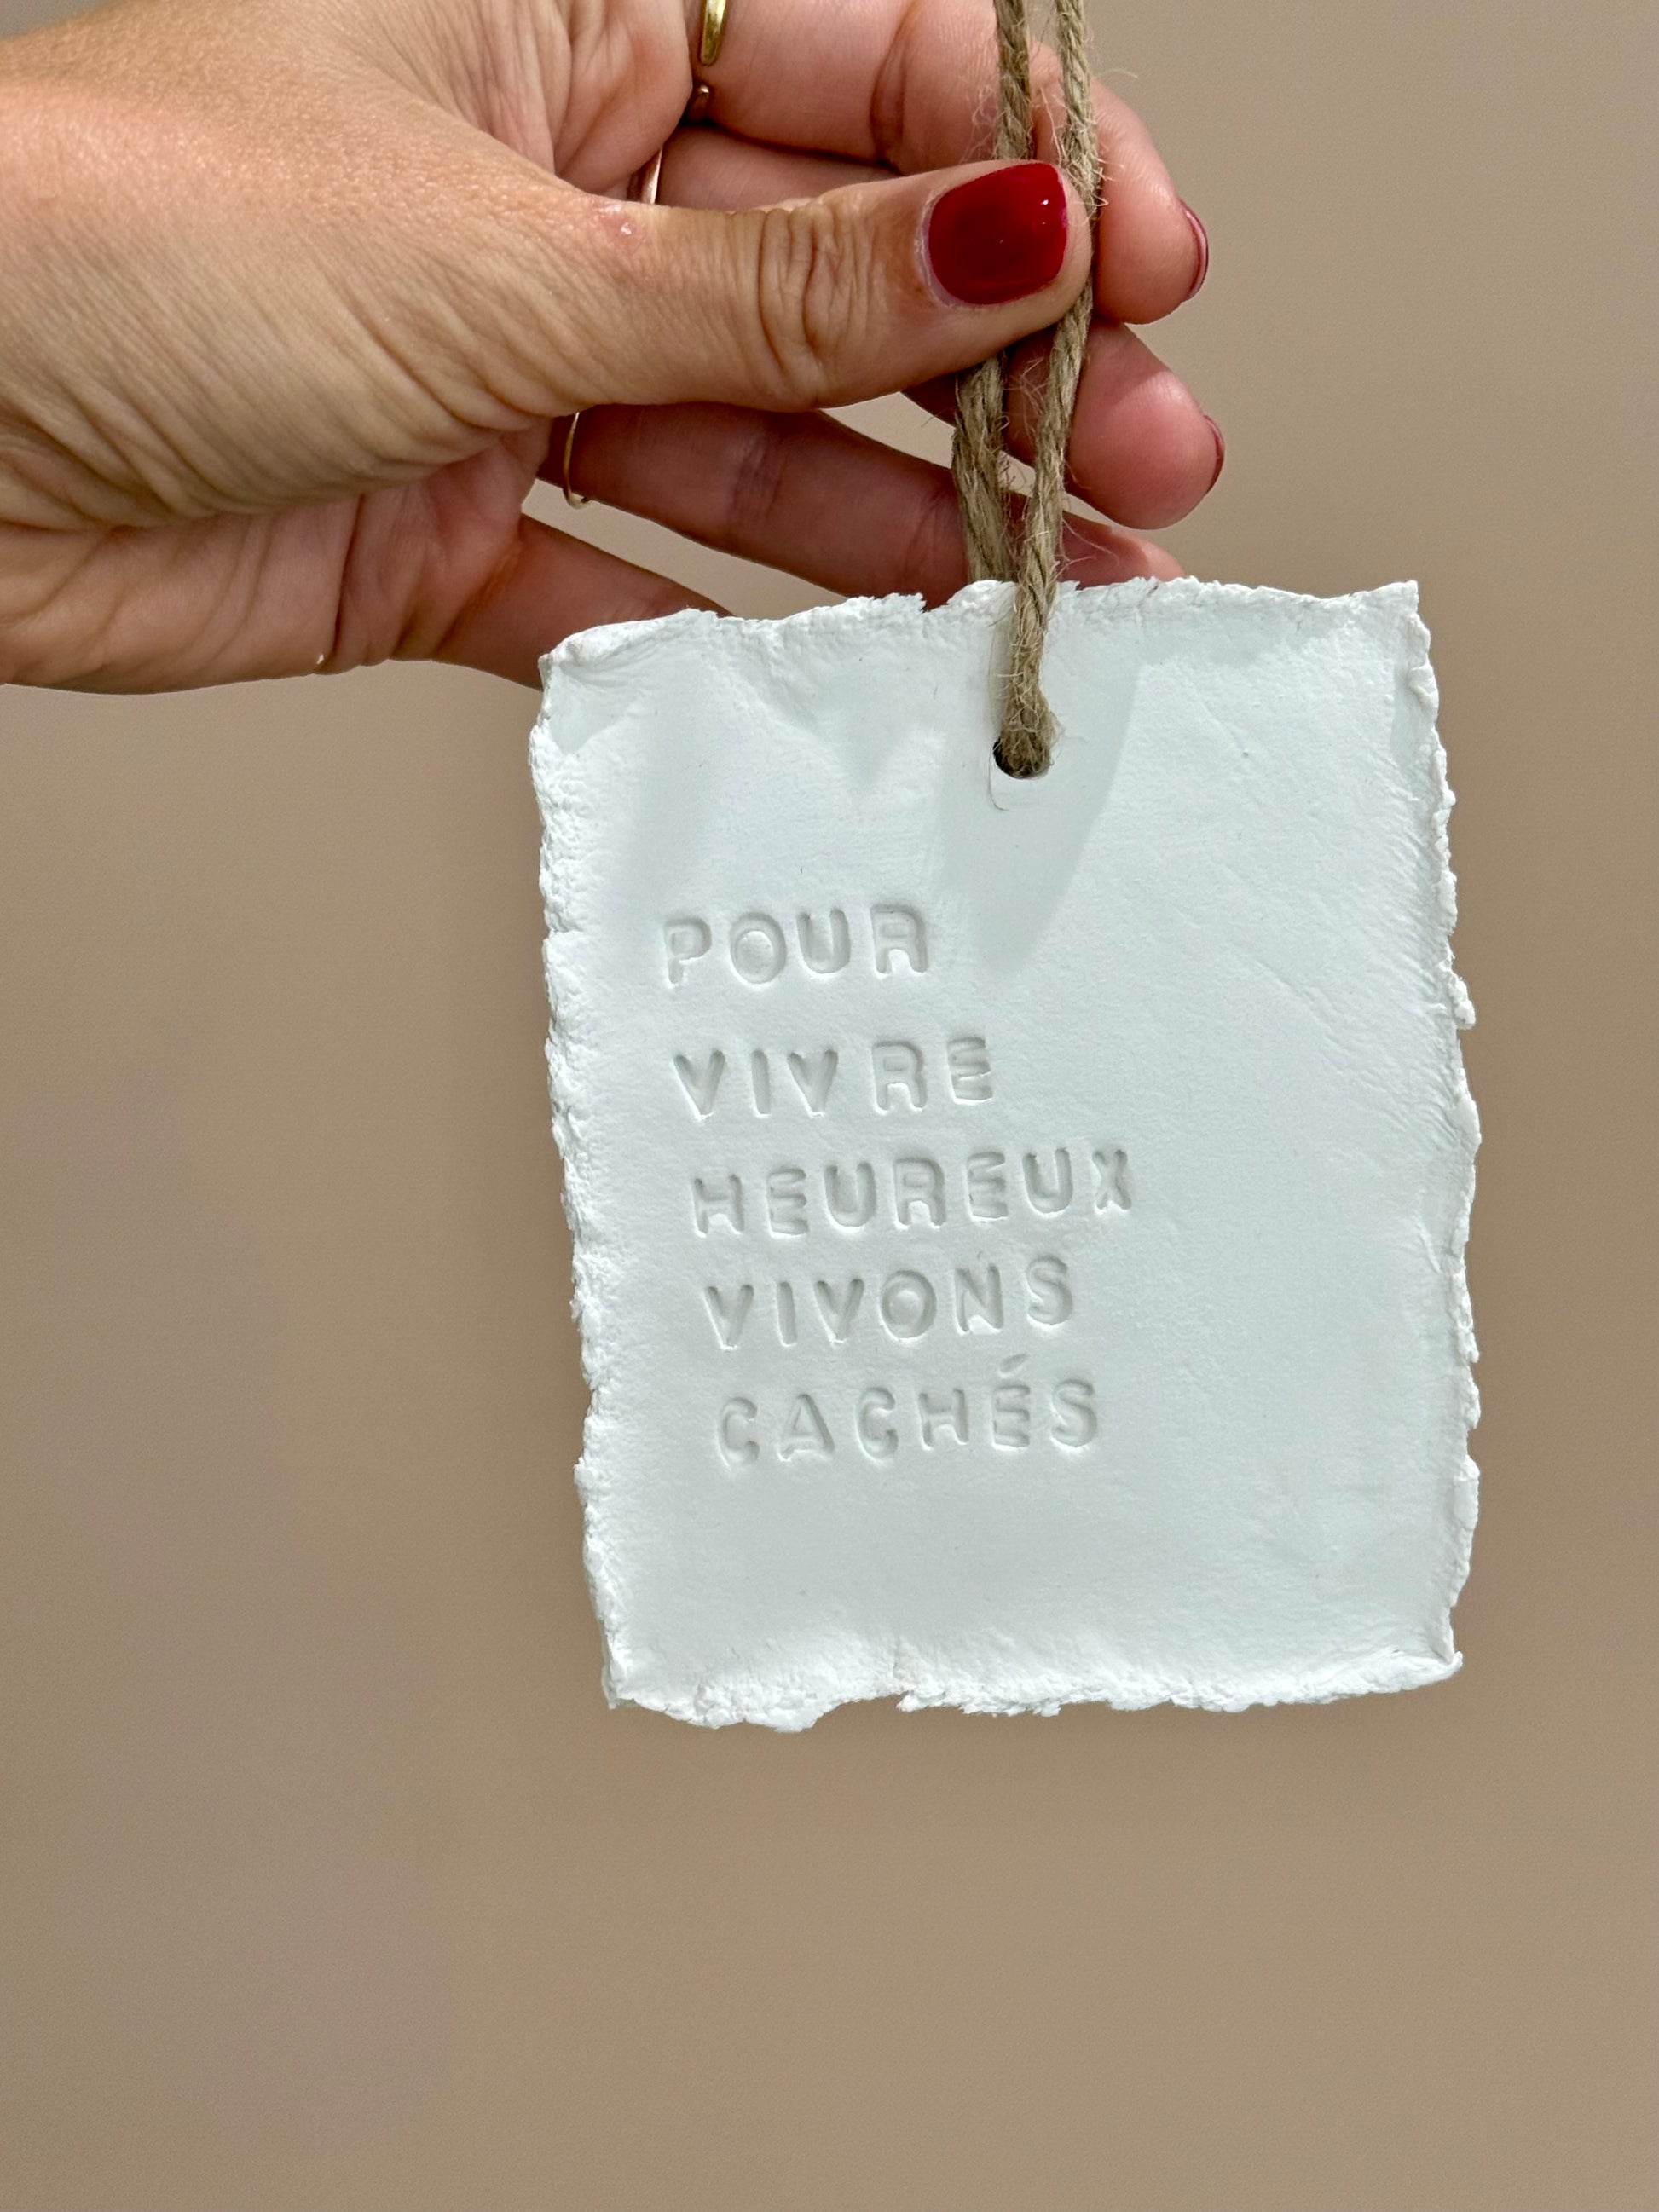 POUR
VIVRE
HEUREUX
VIVONS
CACHÉS